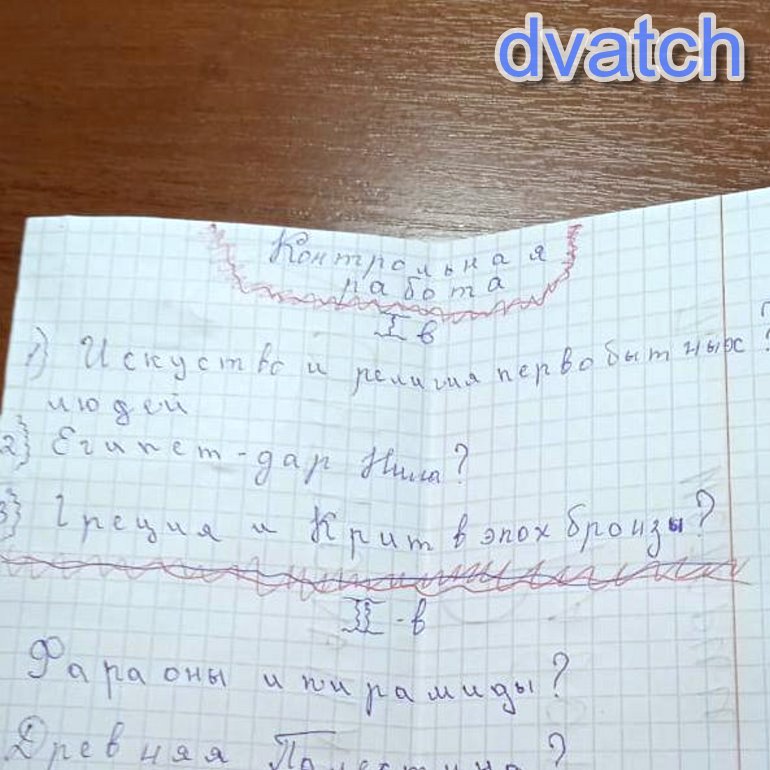 dvatch
Контрольная
работа
I в
1) Искуство и религия первобытных ?
людей
2) Египет-дар Нила?
3) Греция и Крит в эпох бронзы?
II-в
Фараоны и пирамиды?
Древняя Палестина?